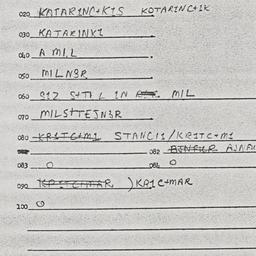 020 KATARINC+KIS KOTARINC+IK
030 KATARINKI
040 A MIL
050 MILN3R
060 S+TIL IN MIL
070 MILS+TEJN3R
080 KRITC+MI STANCII/KRITC+MI
082 BINFUR AJNFU
083 O 084 O
092 KRITCIMAR )KRIC+MAR
100 O